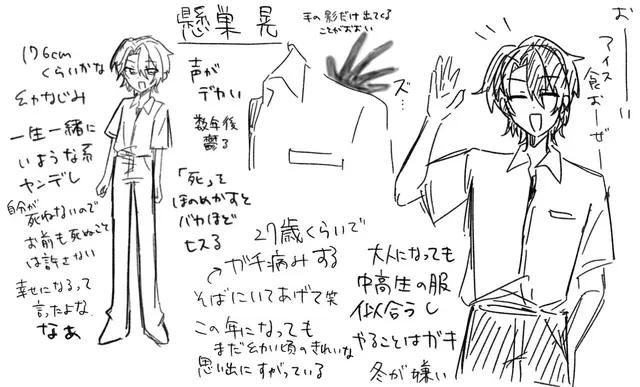 懸巣 晃
176cm
くらいかな
幼なじみ
一生一緒に
いような系
ヤンデレ
自分が
死ねないので
お前も死ぬこと
は許さない
幸せになるって
言ったよな
なあ
声が
デカい
数年後
鬱る
「死」って
ほのめかすと
バカほど
ヒスる
手の影だけ出てくる
ことがおおい
ズ…
おーーい
アイス
食おーぜー
27歳くらいで
ガチ病みする
そばにいてあげて笑
この年になっても
まだ幼い頃のきれいな
思い出にすがっている
大人になっても
中高生の服
似合うし
やることはガキ
冬が嫌い